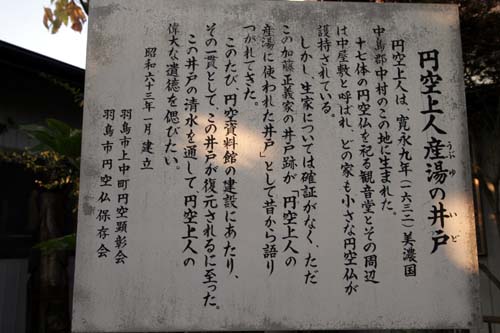 円空上人産湯の井戸
うぶゆ
いど
円空上人は、寛永九年(一六三二)美濃国
中島郡中村のこの地に生まれた。
十七体の円空仏を祀る観音堂とその周辺
は中屋敷と呼ばれ、どの家も小さな円空仏が
護持されている。
しかし、生家については確証がなく、ただ
この加藤正義家の井戸跡が「円空上人の
産湯に使われた井戸」として昔から語り
つがれてきた。
このたび、円空資料館の建設にあたり、
その一貫として、この井戸が復元されるに至った。
この井戸の清水を通して、円空上人の
偉大な遺徳を偲びたい。
昭和六十三年一月 建立
羽島市上中町円空顕彰会
羽島市円空仏保存会